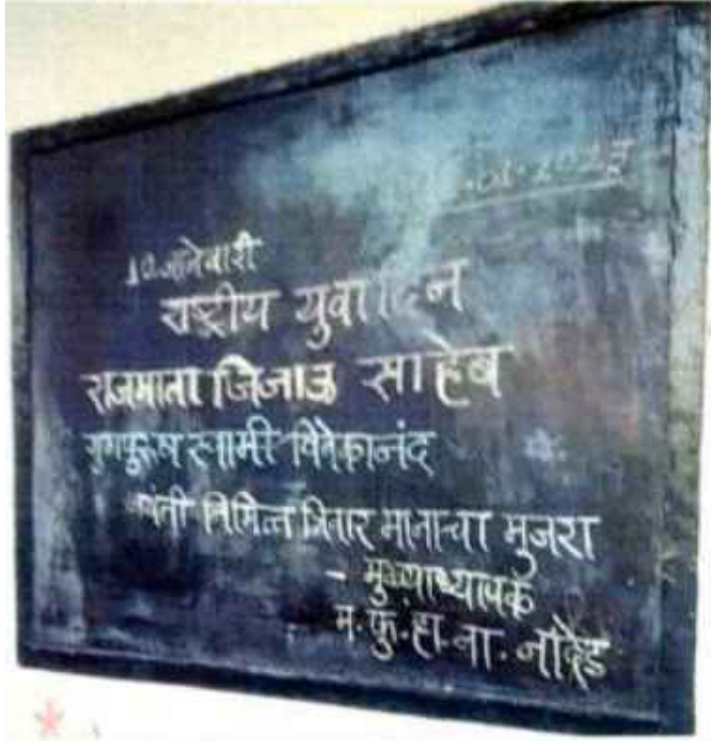 जानेवारी
राष्ट्रीय युवा दिन
राजमाता जिजाऊ साहेब
युगपुरुष स्वामी विवेकानंद
जयंती निमित्त त्रिवार मानाचा मुजरा
- मुख्याध्यापक
म.फु.हा.ना. नांदेड